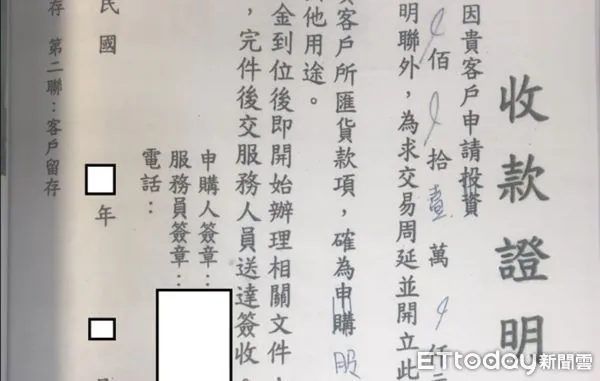 收款證明
因貴客戶申請投資
佰拾壹萬仟
明聯外，為求交易周延並開立此
客戶所匯貨款項，確為申購股
他用途。
金到位後即開始辦理相關文件
，完件後交服務人員送達簽收。
申購人簽章：
服務員簽章：
電話：
民國 年
存 第二聯：客戶留存
ETtoday新聞雲